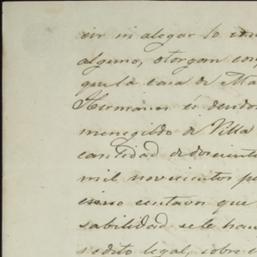 cir ni alegar lo con
alguno, otorgan con
que la casa de Ma
Hermanos é deudo
menegildo de Villa
cantidad de doscient
mil novecientos pe
cinco centavos que
sabilidad se le han
rédito legal, sobre